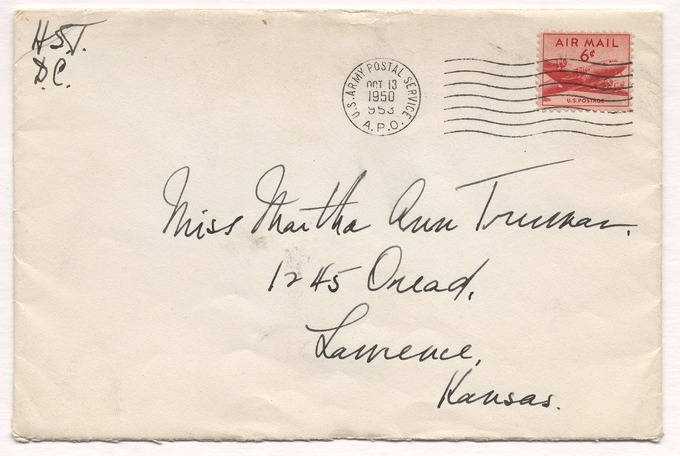 H.S.T.
D.C.
U.S. ARMY POSTAL SERVICE
OCT 13
1950
953
A.P.O.
AIR MAIL
6¢
U.S. POSTAGE
Miss Martha Ann Truman.
1245 Oread,
Lawrence,
Kansas.